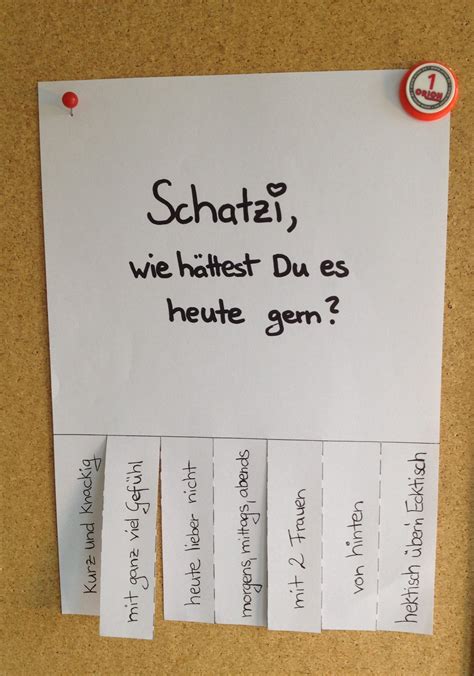 1
ORION
Schatzi,
wie hättest Du es
heute gern?
Kurz und Knackig
mit ganz viel Gefühl
heute lieber nicht
morgens, mittags, abends
mit 2 Frauen
von hinten
hektisch über'n Ecktisch